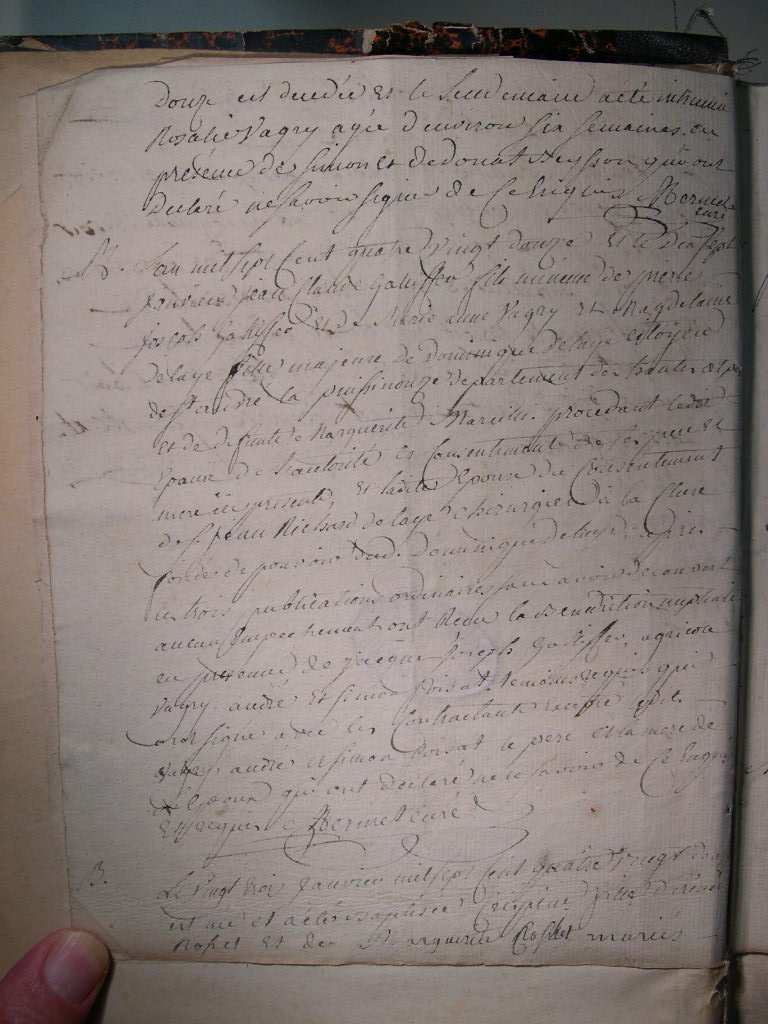 Douze est decedée et le lendemain a eté inhumée
Rosalie Vagry agée d'environ six semaines en
presence de simon et de donat Heysson qui ont
Declaré ne savoir signer de ce Enquis Mermet
curé
M. L'an mil sept cent quatre vingt douze et le dix sept
janvier jean Claude Galiffer fils mineur de pierre
joseph Galiffer et de Marie anne Vagry et Magdelaine
Delaye fille majeure de Dominique delaye citoyen
de St andré la departement des hautes alpes
et de defunte Marguerite Marcelle procedant ledit
Epoux de l'autorité et Consentement de ses pere et
mere ici presents, et ladite Epouse du Consentement
de Sr jean Richard delaye chirurgien à la Cluse
fondé de pouvoir dud. Dominique delaye après
les trois publications ordinaires sans avoir decouvert
aucun Empechement ont Reçu la Benediction nuptiale
en presence de jacque joseph Galiffer, agricole
Vagry, andré et simon Poisat temoins requis qui
ont signé avec les Contractants excepté
Vagry andré et simon Poisat le pere et la mere de
l'Epoux qui ont declaré ne le savoir de ce Enquis
et requis Mermet curé
B. Le vingt trois janvier mil sept cent quatre vingt douze
est née et a eté Baptisée fille d'
Rosset et de Marguerite Rosset mariés